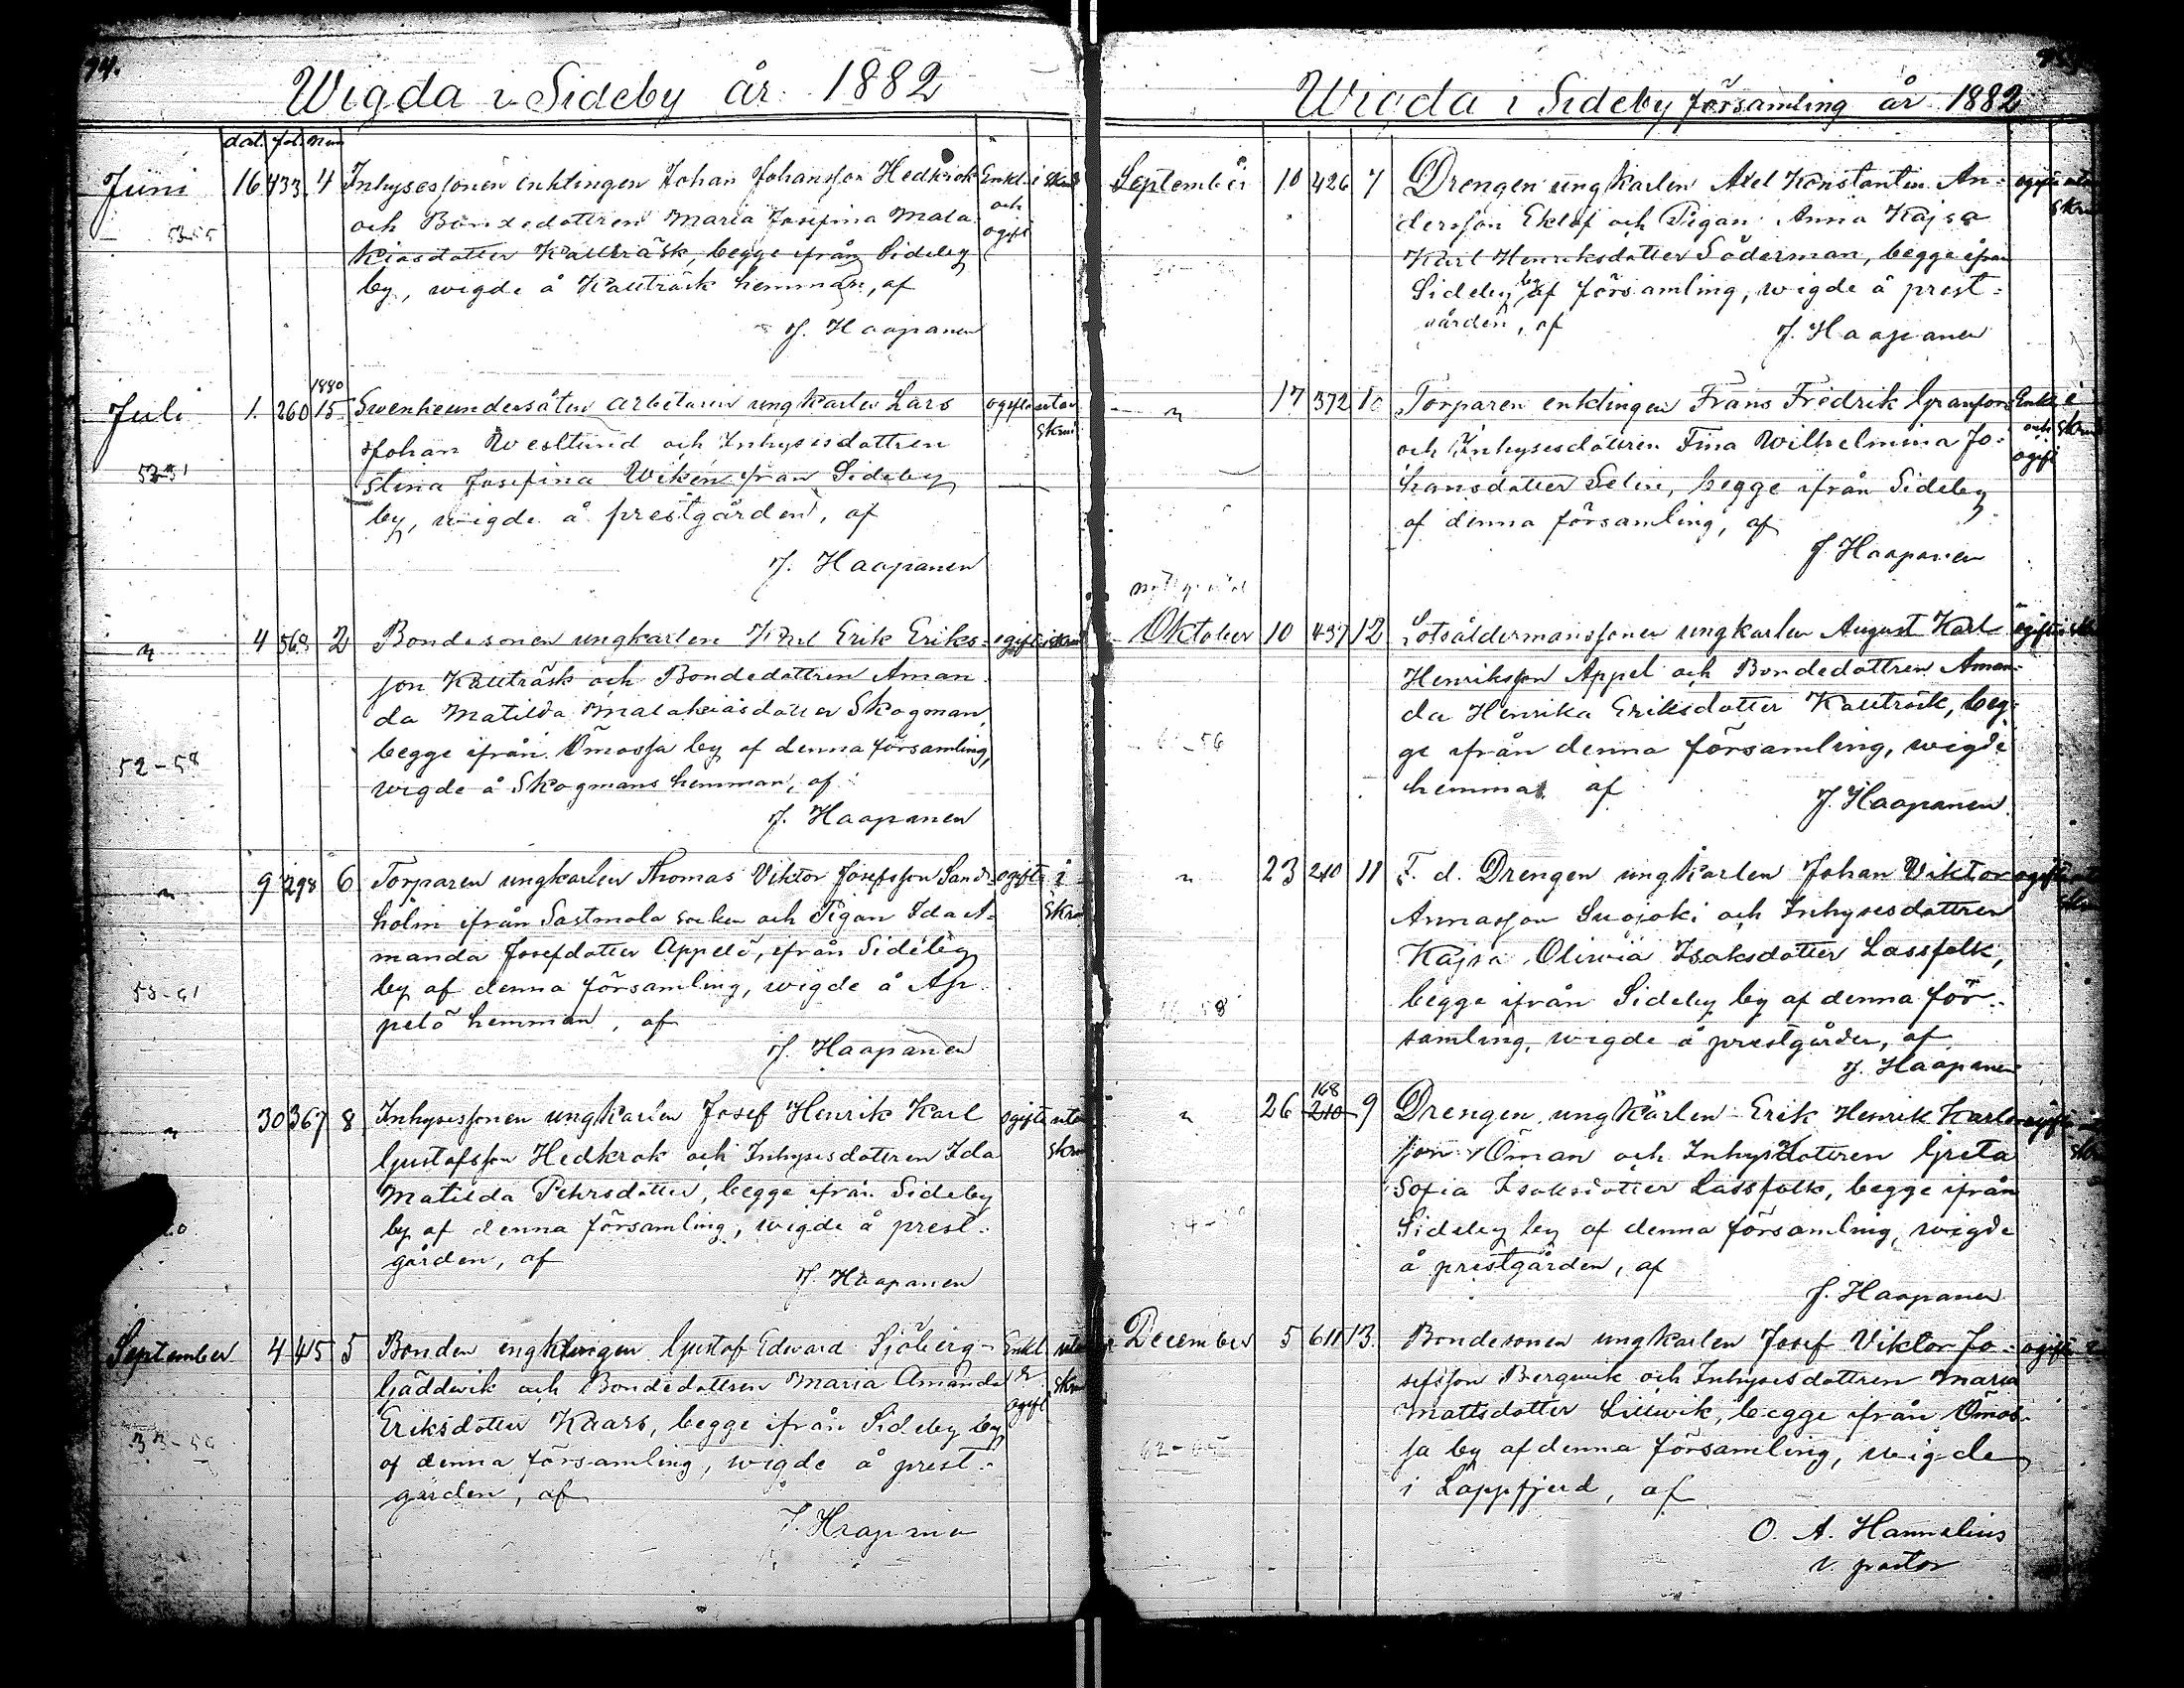 74.
Wigda i Sideby år 1882
dat. fol. num
Juni 16 433 4 Inhysessonen enklingen Johan Johansson Hedkrok Enkl. i skrud
och Bondedottren Maria Josefina Mala- och
53-55 kiasdotter Kallträsk, begge ifrån Sideby ogift
by, wigde å Kallträsk hemman, af
J. Haapanen
1880
Juli 1. 260 15 Svenskundersåten arbetaren ungkarlen Lars ogifta utan
Johan Westlund och Inhysesdottren skrud
stina Josefina Wiken ifrån Sideby
by, wigde å prestgården, af
J. Haapanen
" 4 568 2 Bondesonen ungkarlen Karl Erik Eriks- ogifta i skrud
son Kallträsk och Bondedottren Aman-
da Matilda Malakiasdotter Skogman,
begge ifrån Ömossa by af denna församling,
52-58
wigde å Skogmans hemman, af
J. Haapanen
" 9 298 6 Torparen ungkarlen Thomas Viktor Josefsson Sand- ogifta i
holm ifrån Sastmola socken och Pigan Ida A- skrud
manda Josefdotter Appelö, ifrån Sideby
by af denna församling, wigde å Ap-
pelö hemman, af
J. Haapanen
" 30 367 8 Inhysessonen ungkarlen Josef Henrik Karl ogifta utan
Gustafsson Hedkrok och Inhysesdottren Ida skrud
Matilda Pehrsdotter, begge ifrån Sideby
by af denna församling, wigde å prest-
gården, af
J. Haapanen
September 4 445 5 Bonden engklingen Gustaf Edward Sjöberg- Enkl. utan
Gäddwik och Bondedottren Maria Amanda & skrud
Eriksdotter Kaars, begge ifrån Sideby by ogift
af denna församling, wigde å prest-
gården, af
J. Haapanen
Wigda i Sideby församling år 1882
September 10 426 7 Drengen ungkarlen Axel Konstantin An- ogifta utan
dersson Eklöf och Pigan Anna Kajsa skrud
Karl Henriksdotter Söderman, begge ifrån
Sideby by af församling, wigde å prest-
gården, af
J. Haapanen
" 17 372 10 Torparen enklingen Frans Fredrik Granfors Enkl. i
och Inhysesdottren Fina Wilhelmina Jo- och skrud
hansdotter Selin, begge ifrån Sideby ogift
af denna församling, af
J. Haapanen
Oktober 10 437 12 Lotsåldermanssonen ungkarlen August Karl ogifta
Henriksson Appel och Bondedottren Aman-
da Henrika Eriksdotter Kallträsk, beg-
ge ifrån denna församling, wigde
hemma af
J. Haapanen
" 23 210 11 F. d. Drengen ungkarlen Johan Viktor ogifta
Annasson Suojoki och Inhysesdottren
Kajsa Oliwia Isaksdotter Lassfolk,
begge ifrån Sideby by af denna för-
samling, wigde å prestgården, af
J. Haapanen
168
" 26 210 9 Drengen ungkarlen Erik Henrik Karls- ogifta
son Öman och Inhysesdottren Greta
Sofia Isaksdotter Lassfolk, begge ifrån
Sideby by af denna församling, wigde
å prestgården, af
J. Haapanen
December 5 611 13. Bondesonen ungkarlen Josef Viktor Jo- ogifta
sefsson Bergwik och Inhysesdottren Maria
Mattsdotter Lillwik, begge ifrån Ömos-
sa by af denna församling, wigde
i Lappfjerd, af
O. A. Hannelius
v. pastor